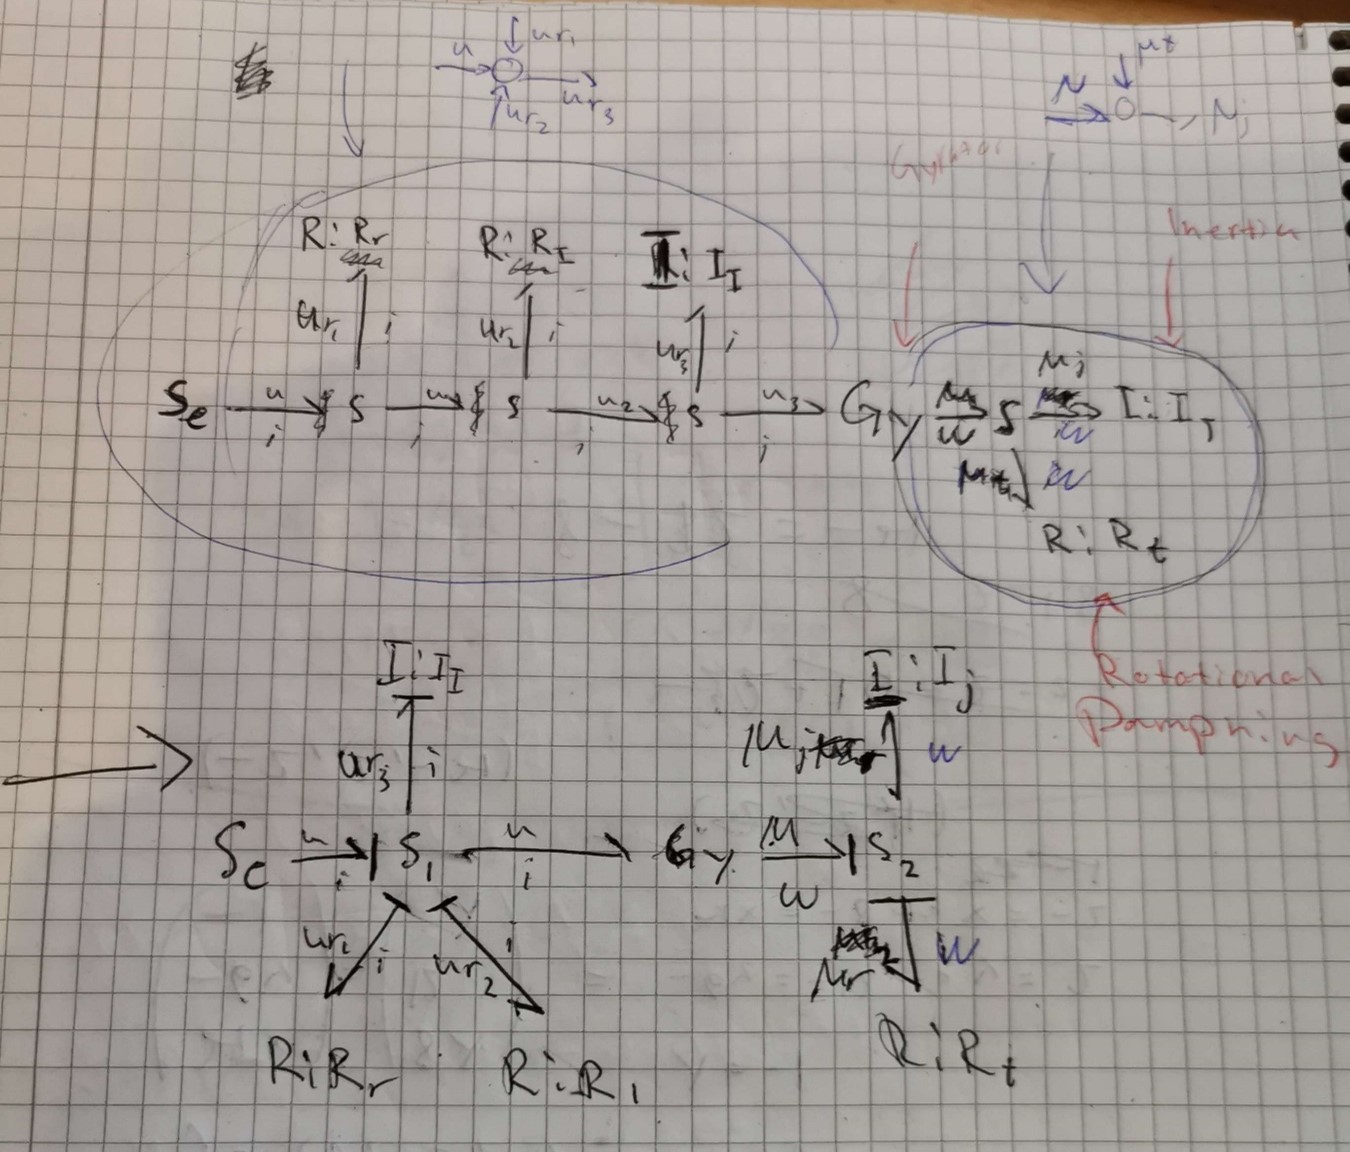 u ur₁
ur₂ ur₃
μt
N Nj
Gyrator
Inertia
R: Rr R: R_I I: I_I
ur₁ i ur₂ i ur₃ i
Se u i S u i S u₂ i S u₃ i Gy w S μj w I: Ij
w
R: Rt
Rotational
Dampning
I: I_I I: Ij
ur₃ i μj w
Se u i S₁ u i Gy μ w S₂
ur₁ i ur₂ i μr w
R: Rr R: R₁ R: Rt